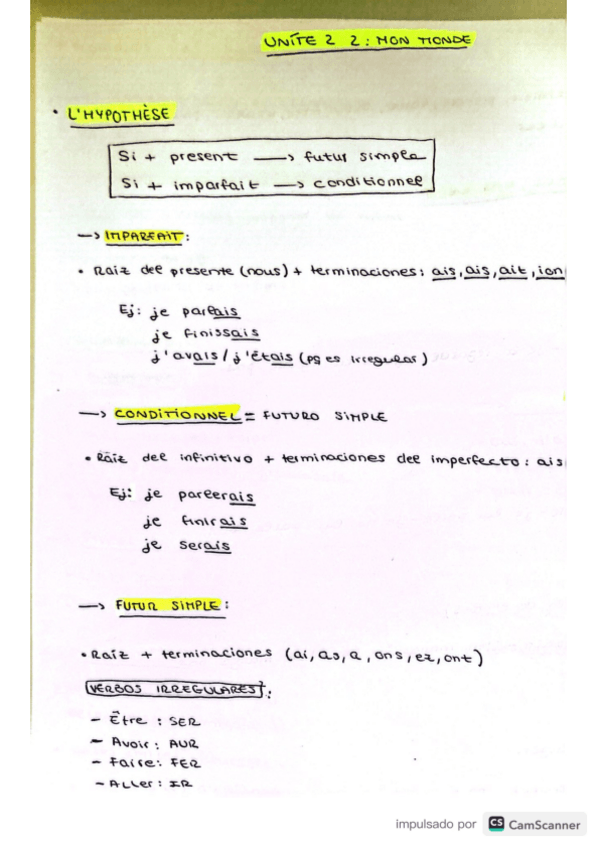 UNITE 2 2: MON MONDE
• L'HYPOTHÈSE
Si + present → futur simple
Si + imparfait → conditionnel
→ IMPARFAIT:
• Raiz del presente (nous) + terminaciones: ais, ais, ait, ion
Ej: je parlais
je finissais
j'avais / j'étais (es irregular)
→ CONDITIONNEL = FUTURO SIMPLE
• Raiz del infinitivo + terminaciones del imperfecto: ais
Ej: je parlerais
je finirais
je serais
→ FUTUR SIMPLE:
• Raiz + terminaciones (ai, as, a, ons, ez, ont)
VERBOS IRREGULARES:
- Être: SER
- Avoir: AUR
- Faire: FER
- ALLER: IR
impulsado por CS CamScanner